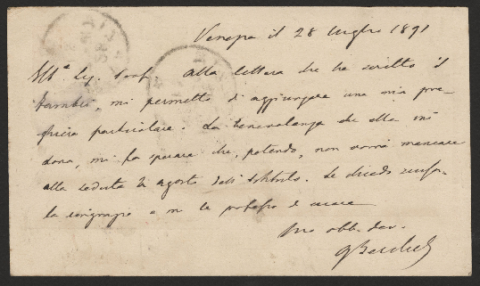 Venezia il 28 luglio 1891
Ill.º Sig. Prof. Alla lettera che ha scritto il
Lambu, mi permetto di aggiungere una mia pre-
ghiera particolare. La benevolenza che ella mi
dona, mi fa sperare che, potendo, non vorrà mancare
alla seduta di agosto dell'Istituto. Le chiedo scusa,
la ringrazio e me le professo di cuore
Suo obb. dev.
GBerchet